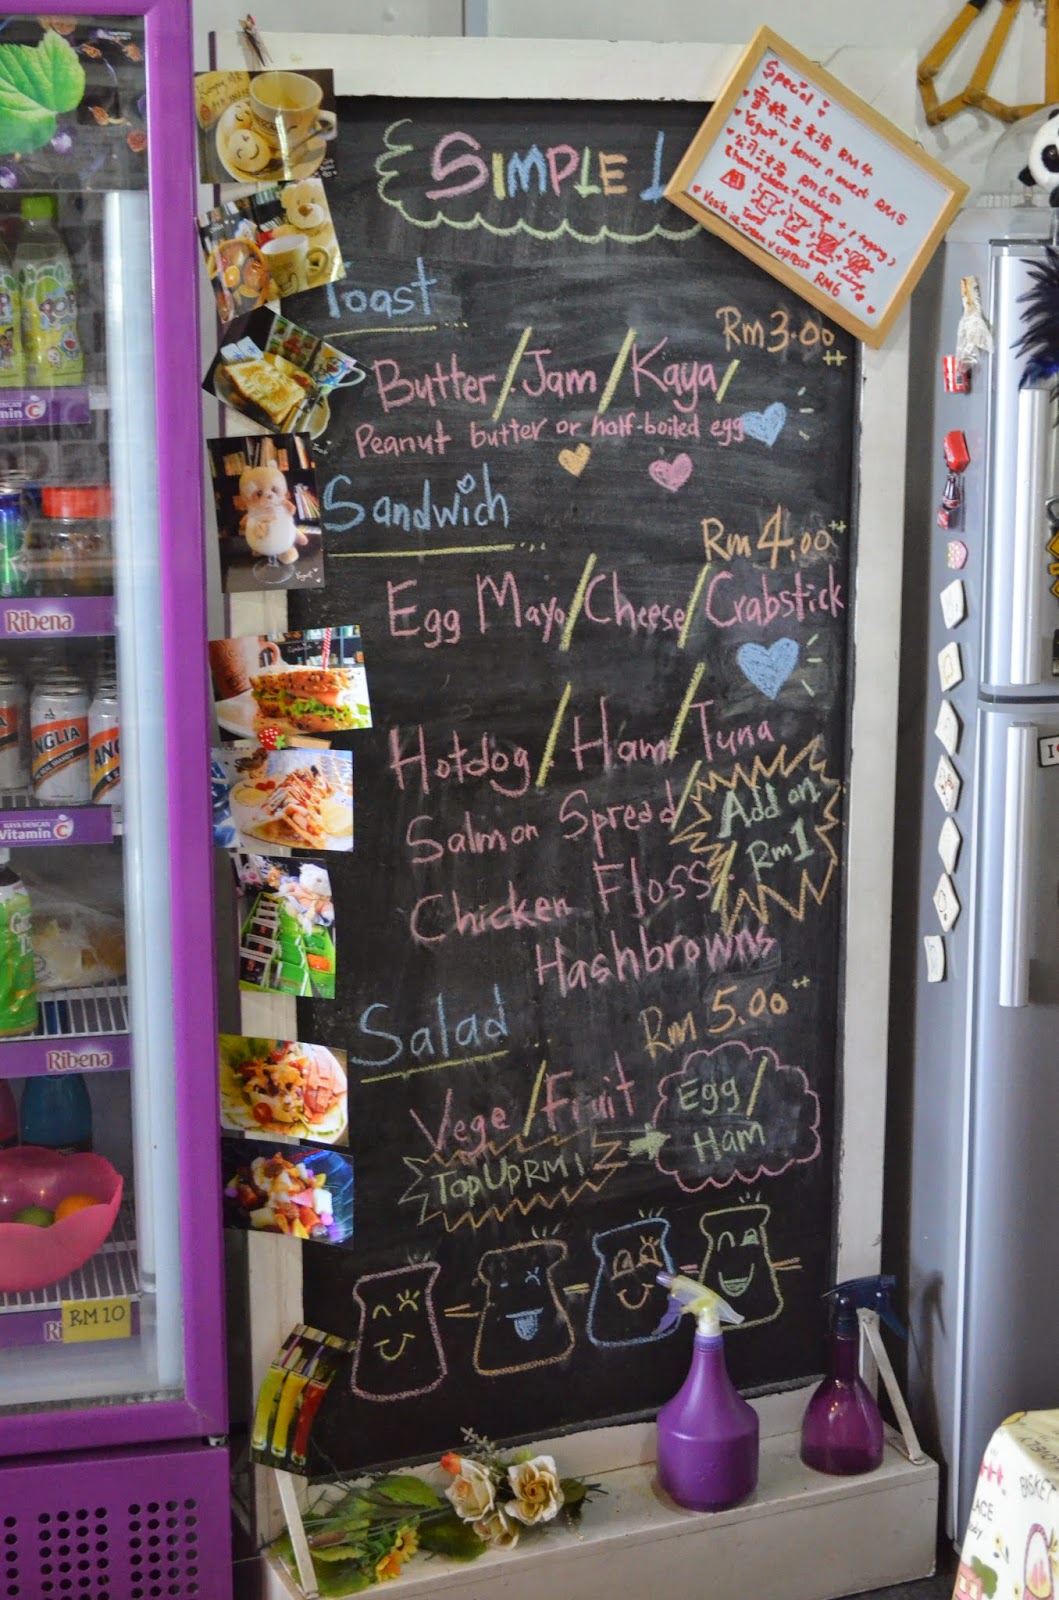 SIMPLE L
Toast
Rm3.00++
Butter/Jam/Kaya/
Peanut butter or half-boiled egg
Sandwich
Rm4.00++
Egg Mayo/Cheese/Crabstick
Hotdog/Ham/Tuna
Salmon Spread/
Chicken Floss/
Hashbrowns
Add on
Rm1
Salad
Rm5.00++
Vege/Fruit
Top Up RM1
Egg/
Ham
Special
雪糕三文治 RM4
Yogurt v berries n muesli RM5
公司三文治 RM6.50
(ham + cheese + cabbage +
ice-cream v espresso RM6
Vitamin C
Ribena
ANGLIA
KAYA DENGAN
Vitamin C
Ribena
RM10
BISKET